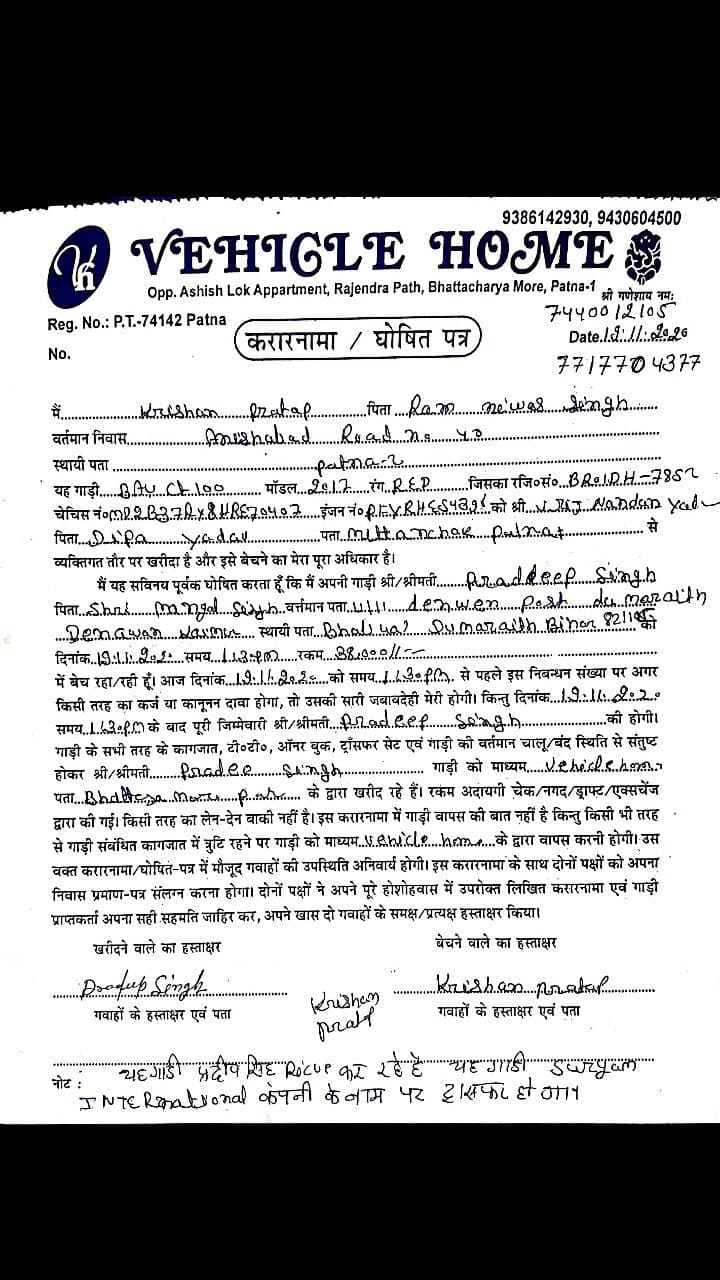 9386142930, 9430604500
VEHICLE HOME
Opp. Ashish Lok Appartment, Rajendra Path, Bhattacharya More, Patna-1
श्री गणेशाय नमः
7440012105
Reg. No.: P.T.-74142 Patna
करारनामा / घोषित पत्र
Date.19.11.2020
No.
7717704377
मैं Krishan Pratap पिता Ram newas Singh
वर्तमान निवास Anishabad Road no 40
स्थायी पता Patna-2
यह गाड़ी BAJ Ct 100 मॉडल 2017 रंग RED जिसका रजि०सं० BR01DH-7852
चेचिस नं० इंजन नं० को श्री Nandan
पिता Dipa yadav पता mittanchak Patna से
व्यक्तिगत तौर पर खरीदा है और इसे बेचने का मेरा पूरा अधिकार है।
मैं यह सविनय पूर्वक घोषित करता हूँ कि मैं अपनी गाड़ी श्री/श्रीमती Praddeep Singh
पिता Shri Mangal Singh वर्तमान पता denwen Post dumaraith
स्थायी पता Dumaraith Bihar को
दिनांक 19.11.2020 समय 1.43.pm रकम 38,000//-
में बेच रहा/रही हूँ। आज दिनांक 19.11.2020 को समय 1.43.pm से पहले इस निबन्धन संख्या पर अगर
किसी तरह का कर्ज या कानूतन दावा होगा, तो उसकी सारी जवावदेही मेरी होगी। किन्तु दिनांक 19.11.2020
समय 1.43.pm के बाद पूरी जिम्मेवारी श्री/श्रीमती Pradeep Singh की होगी।
गाड़ी के सभी तरह के कागजात, टी०टी०, ऑनर बुक, ट्राँसफर सेट एवं गाड़ी की वर्तमान चालू/बंद स्थिति से संतुष्ट
होकर श्री/श्रीमती Pradee Singh गाड़ी को माध्यम Vehicle home
पता के द्वारा खरीद रहे हैं। रकम अदायगी चेक/नगद/ड्राफ्ट/एक्सचेंज
द्वारा की गई। किसी तरह का लेन-देन बाकी नहीं है। इस करारनामा में गाड़ी वापस की बात नहीं है किन्तु किसी भी तरह
से गाड़ी संबंधित कागजात में त्रुटि रहने पर गाड़ी को माध्यम vehicle home के द्वारा वापस करनी होगी। उस
वक्त करारनामा/घोषित-पत्र में मौजूद गवाहों की उपस्थिति अनिवार्य होगी। इस करारनामा के साथ दोनों पक्षों को अपना
निवास प्रमाण-पत्र संलग्न करना होगा। दोनों पक्षों ने अपने पूरे होशोहवास में उपरोक्त लिखित करारनामा एवं गाड़ी
प्राप्तकर्ता अपना सही सहमति जाहिर कर, अपने खास दो गवाहों के समक्ष/प्रत्यक्ष हस्ताक्षर किया।
खरीदने वाले का हस्ताक्षर
बेचने वाले का हस्ताक्षर
Pradeep Singh
Krishan Pratap
गवाहों के हस्ताक्षर एवं पता
Krishan
Pratap
गवाहों के हस्ताक्षर एवं पता
नोट : यह गाड़ी प्रदीप सिंह Ricue कर रहे है यह गाड़ी Suryam
INTERnational कंपनी के नाम पर